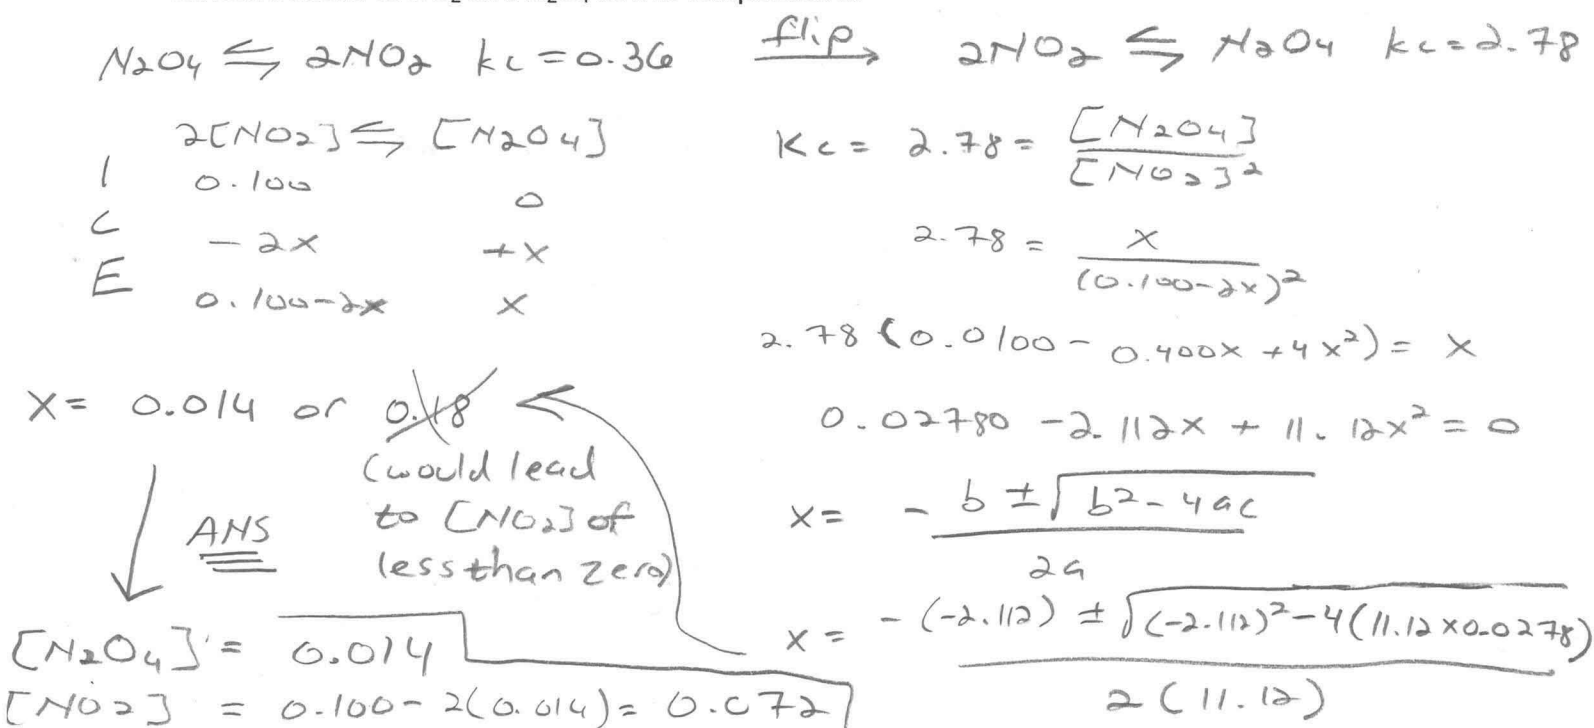 N2O4 ⇌ 2NO2 kc = 0.36 flip → 2NO2 ⇌ N2O4 kc = 2.78
2[NO2] ⇌ [N2O4]
I 0.100 0
C -2x +x
E 0.100-2x x
Kc = 2.78 = [N2O4] / [NO2]²
2.78 = x / (0.100-2x)²
2.78 (0.0100 - 0.400x + 4x²) = x
0.02780 - 2.112x + 11.12x² = 0
x = - b ± √b² - 4ac / 2a
x = -(-2.112) ± √(-2.112)² - 4(11.12 x 0.0278) / 2(11.12)
X = 0.014 or 0.18
(would lead
to [NO2] of
less than zero)
ANS
[N2O4] = 0.014
[NO2] = 0.100 - 2(0.014) = 0.072